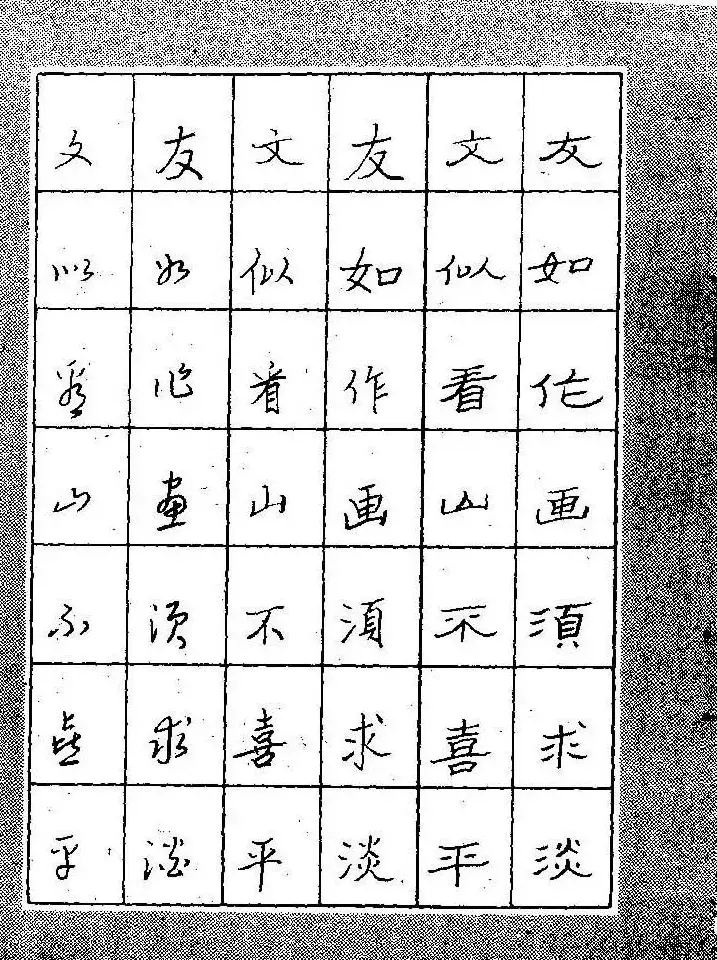 友如作画須求淡
文似看山不喜平
友如作画須求淡
文似看山不喜平
友如作畫須求淡
文似看山不喜平